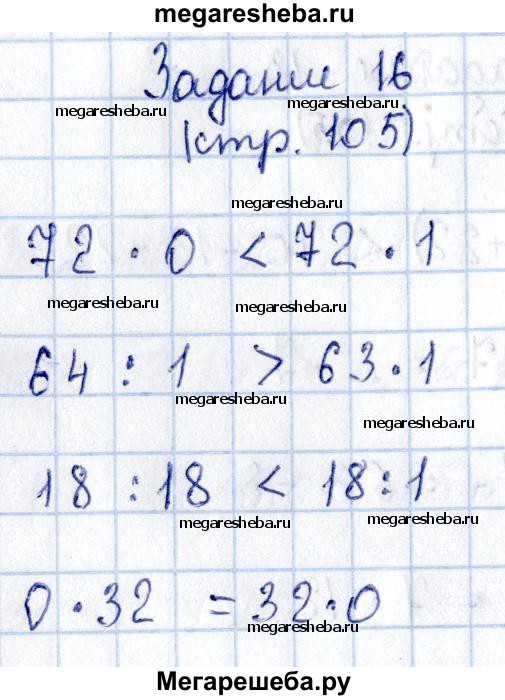 megaresheba.ru
Задание 16
megaresheba.ru megaresheba.ru
(стр. 105)
megaresheba.ru
72 · 0 < 72 · 1
megaresheba.ru megaresheba.ru
64 : 1 > 63 · 1
megaresheba.ru megaresheba.ru
18 : 18 < 18 : 1
megaresheba.ru megaresheba.ru
0 · 32 = 32 · 0
megaresheba.ru
Мегарешеба.ру